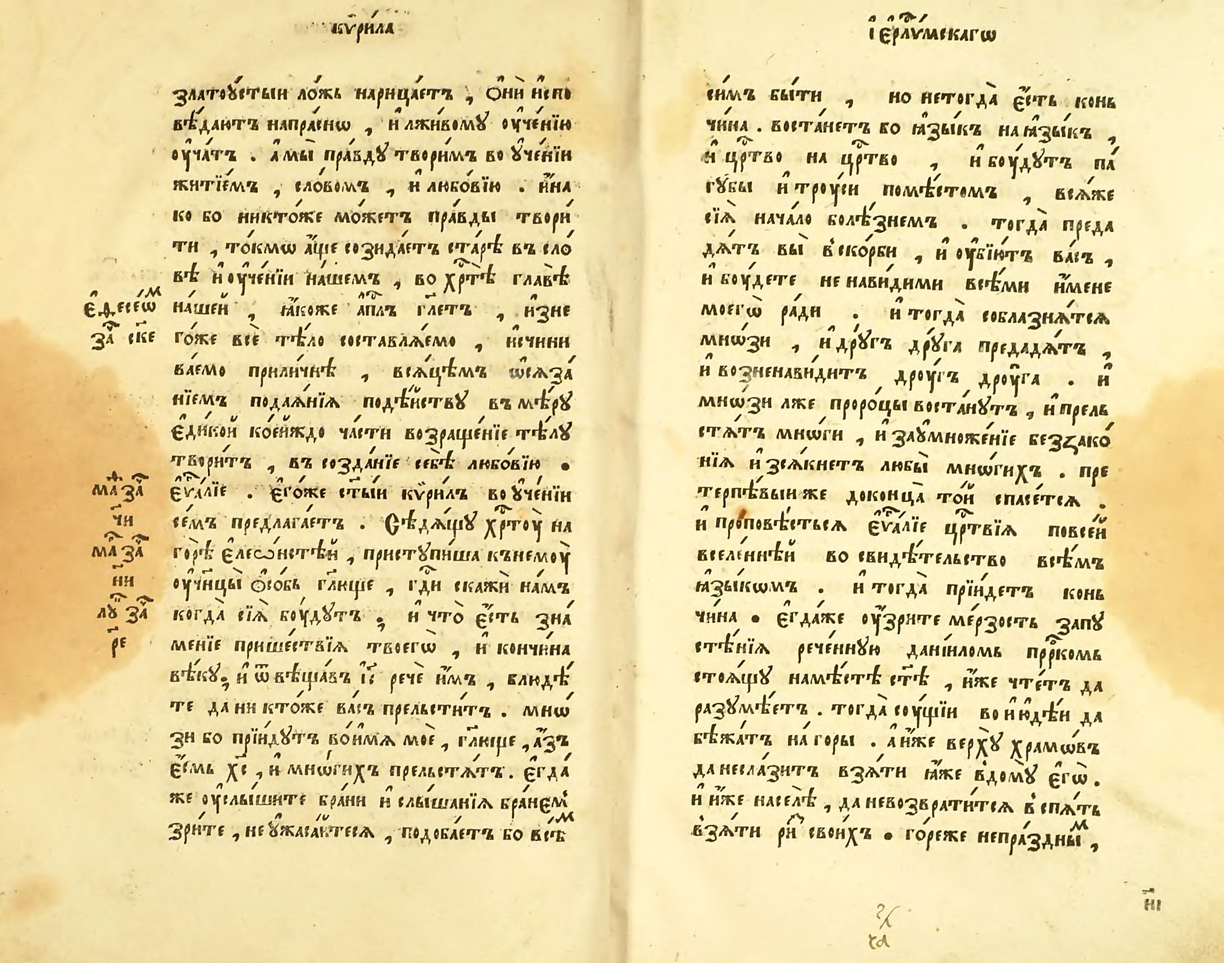 кѵри́ла
златоу́стыи ло́жь нарица́етъ , Ѻни́ испо
вѣ́даютъ напра́снѡ , и лжи́вому оуче́нїю
оуча́тъ . а мы̀ пра́вду твори́мъ во уче́нїи
житїе́мъ , сло́вомъ , и любо́вїю . и́на
ко бо никто́же мо́жетъ пра́вды твори́
ти , то́кмѡ а́ще созида́етъ ста́рѣ въ сло́
вѣ и оуче́нїи на́шемъ , во хр҇тѣ̀ главѣ̀
на́шей , ꙗ́коже а҆пл҇ъ гл҃етъ , и́зне
го́же всѐ тѣ́ло составлѧ́емо , исчини
ва́емо прили́чнѣ , всѧ́цѣмъ ѡсѧза́
нїемъ подаѧ́нїѧ подѣ́йству въ мѣ́ру
є҆ди́ной коеи́ждо ча́сти возраще́нїе тѣ́лу
твори́тъ , въ созда́нїе себѣ̀ любо́вїю .
є҆ѵⷢ҇а́лїе . є҆го́же ст҃ы́и кѵри́лъ во уче́нїи
се́мъ предлага́етъ . Сѣдѧ́щу хр҇тоу̀ на
горѣ̀ є҆леѡ́нстѣй , приступи́ша къ немоу̀
оучн҃цы̀ ѻсо́бь гл҃юще , гд҇и скажѝ на́мъ
когда̀ сїѧ̀ боу́дутъ ; и что̀ є҆́сть зна́
менїе прише́ствїѧ твоегѡ̀ , и кончи́на
вѣ́ку; и ѿвѣща́въ і҆с҃ речѐ и́мъ , блюди́
те да никто́же ва́съ прельсти́тъ . мнѡ́
зи бо прїи́дутъ во и́мѧ моѐ , гл҃юще , а́зъ
є҆́смь хс҃ , и мнѡ́гихъ прельстѧ́тъ . є҆гда́
же оуслы́шите бра́ни и слы́шанїѧ бра́нем
зри́те , не ужаса́йтесѧ , подоба́етъ бо всѣ́ⷨ
є҆ѳ҆есе́ѡⷨ
заⷱ҇ ск҃е
маⷴ҇ заⷱ҇
ч҃и
маⷴ҇ заⷱ҇
н҃и
лу҇ заⷱ҇
р҃е
і҆ е҆рⷭ҇л҃и́мскагѡ
си́мъ бы́ти , но не тогда̀ є҆́сть конь
чи́на . воста́нетъ бо ꙗзы́къ на ꙗзы́къ ,
и цр҇тво на цр҇тво , и боу́дутъ па́
губы и троу́си по мѣ́стомъ , всѧ́же
сїѧ̀ нача́ло болѣ́знемъ . тогда̀ преда
дѧ́тъ вы̀ в ско́рби , и оубїю́тъ ва́съ ,
и боу́дете ненави́дими всѣ́ми и́мене
моегѡ̀ ра́ди . и тогда̀ соблазнѧ́тсѧ
мнѡ́зи , и дру́гъ дру́га предадѧ́тъ ,
и возненави́дитъ дроу́гъ дроу́га . и
мнѡ́зи лже проро́цы воста́нутъ , и прель
стѧ́тъ мнѡ́ги , и за умноже́нїе беззако́
нїѧ изсѧ́кнетъ любы̀ мнѡ́гихъ . пре
терпѣ́выи же до конца̀ то́й спасе́тсѧ .
и проповѣ́стьсѧ є҆ѵⷢ҇а́лїе цр҇твїѧ по все́й
вселе́ннѣй во свидѣ́тельство всѣ́мъ
ꙗзы́кѡмъ . и тогда̀ прїи́детъ конь
чи́на . є҆гда́же оу́зрите ме́рзость запу
стѣ́нїѧ рече́нную данїи́ломь прⷪ҇ркомь
стоѧ́щу на мѣ́стѣ ст҃ѣ , и́же чте́тъ да
разумѣ́етъ . тогда̀ соу́щїи во и҆юдѣ́и да
бѣжа́тъ на го́ры . а и́же верху̀ хра́мѡвъ
да не сла́зитъ взѧ́ти ꙗ́же в дому̀ є҆гѡ̀ .
и и́же на селѣ̀ , да не возврати́тсѧ вспѧ́ть
взѧ́ти ри҇ свои́хъ . го́ре же непра́здныⷨ ,
н҃і